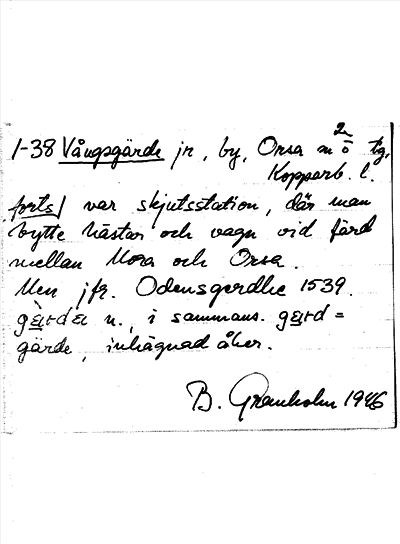 1-38 Vångsgärde jr, by, Orsa m ö tg,
2
Kopparb. l.
forts/ var skjutsstation, där man
bytte hästar och vagn vid färd
mellan Mora och Orsa.
Men jfr. Odensgerdhe 1539.
n., i sammans. =
gärde, inhägnad åker.
B. Granholm 1946